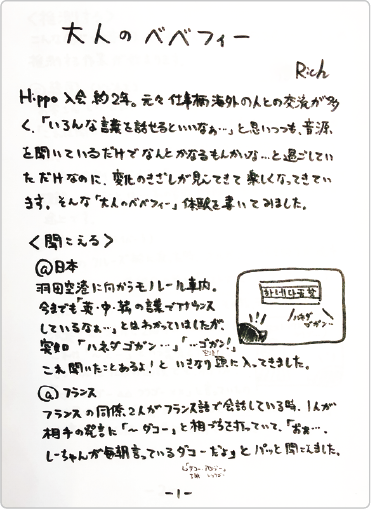 大人のベベフィー
Rich
Hippo 入会 約2年。元々 仕事柄 海外の人との交流が多
く、「いろんな言葉を話せるといいなぁ…」と思いつつも、音源
を聞いているだけでなんとかなるもんかいな…と過ごしてい
ただけなのに、変化のきざしが見えてきて楽しくなってきてい
ます。そんな「大人のベベフィー」体験を書いてみました。
<聞こえる>
@日本
羽田空港に向かうモノレール車内。
今までも「英・中・韓の言葉でアナウンス
しているなぁ…」とはわかっていましたが、
突如 「ハネダゴガン…」「…ゴガン!」
これ聞いたことあるよ! と いきなり頭に入ってきました。
ハネダ
ゴガン…
@ フランス
フランスの同僚2人がフランス語で会話している時、1人が
相手の発言に「〜ダコー」と相づちを打っていて、「おぉ…、
しーちゃんが毎朝言っているダコーだよ」とパッと聞こえました。
-1-